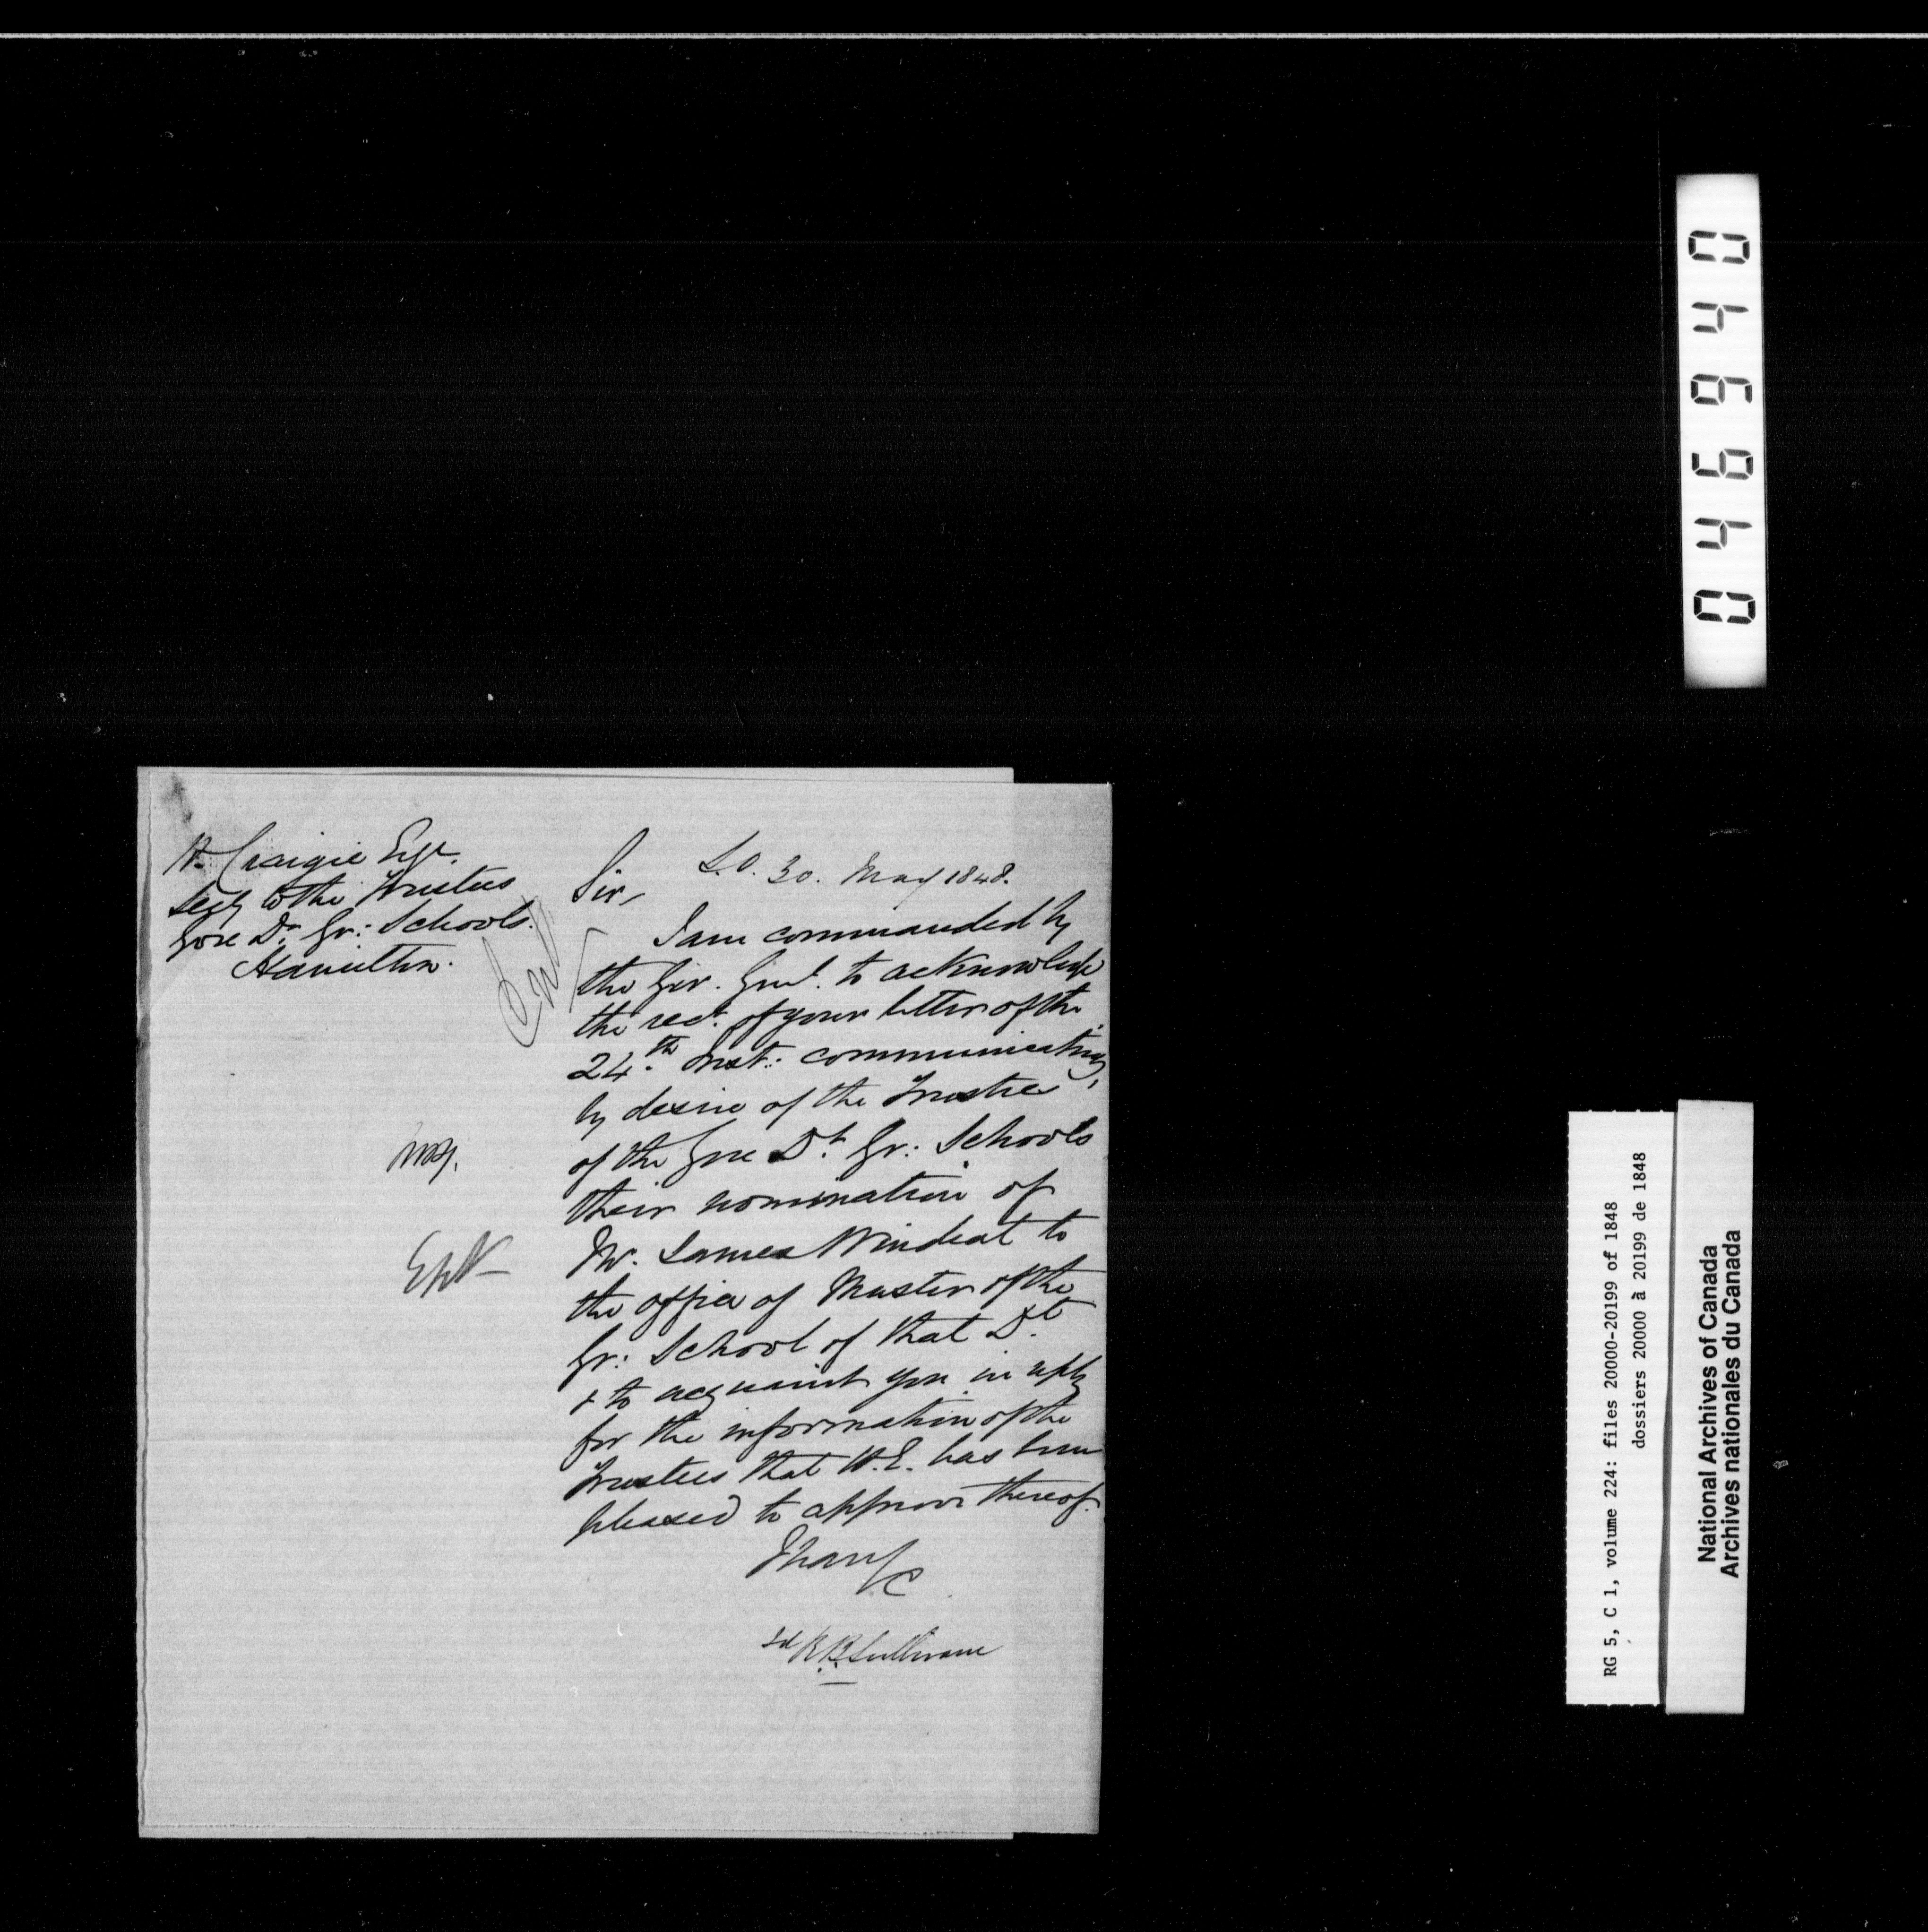 W. Craigie Esqr.
Secy to the Trustees
Gore Dt. Gr: Schools.
Hamilton.
S.O. 30. May 1848.
Sir,
I am commanded by
the Gov. Genl. to acknowledge
the rect. of your letter of the
24th. Inst: communicating,
by desire of the Trustees
of the Gore Dt. Gr: Schools
their nomination of
Mr. James Windeat to
the office of Master of the
Gr: School of that Dt.
& to acquaint you in reply
for the information of the
Trustees that H.E. has been
pleased to approve thereof.
I have &c
Sd R.B. Sullivan
046940
RG 5, C 1, volume 224: files 20000-20199 of 1848
dossiers 20000 à 20199 de 1848
National Archives of Canada
Archives nationales du Canada